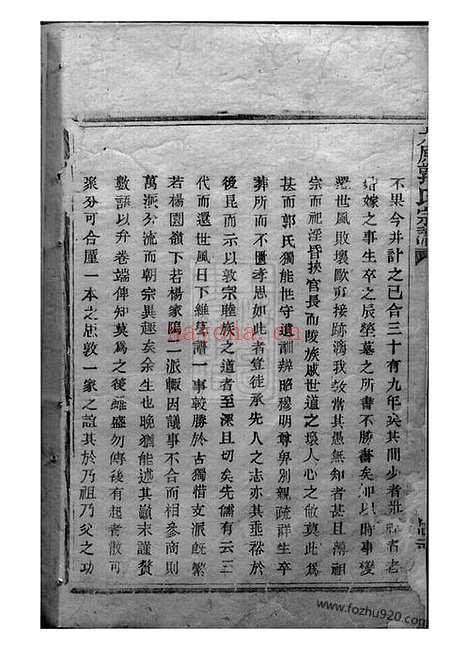 不果今并計之已合三十有九年矣其間少者壯壯者老
婚嫁之事生卒之辰塋墓之所書不勝書矣卽以時事變
遷世風敗壞歐剪接跡滔我故常其愚無知甚且蔑祖
宗而祀淫昏挾官長而陵族戚世道之壞人心之敝莫此爲
甚而郭氏獨能世守遺訓辨昭穆明尊卑別親疏詳生卒
葬所而不匱孝思如此者豈徒承先人之志亦其垂裕於
後昆而示以敦宗睦族之道者至深且切矣先儒有云三
代而還世風日下維尊譜一事較勝於古獨惜支派旣繁
若楊園嶺下若楊家陽二派輙因議事不合而相參商則
萬派分流而朝宗異趣矣余生也晚猶能述其巔末謹贅
數語以弁卷端俾知莫爲之後雖盛勿傳後有起者散可
聚分可合厪一本之思敦一家之誼其於乃祖乃父之功
郭氏宗譜
nayona.cn
www.fozhu920.com